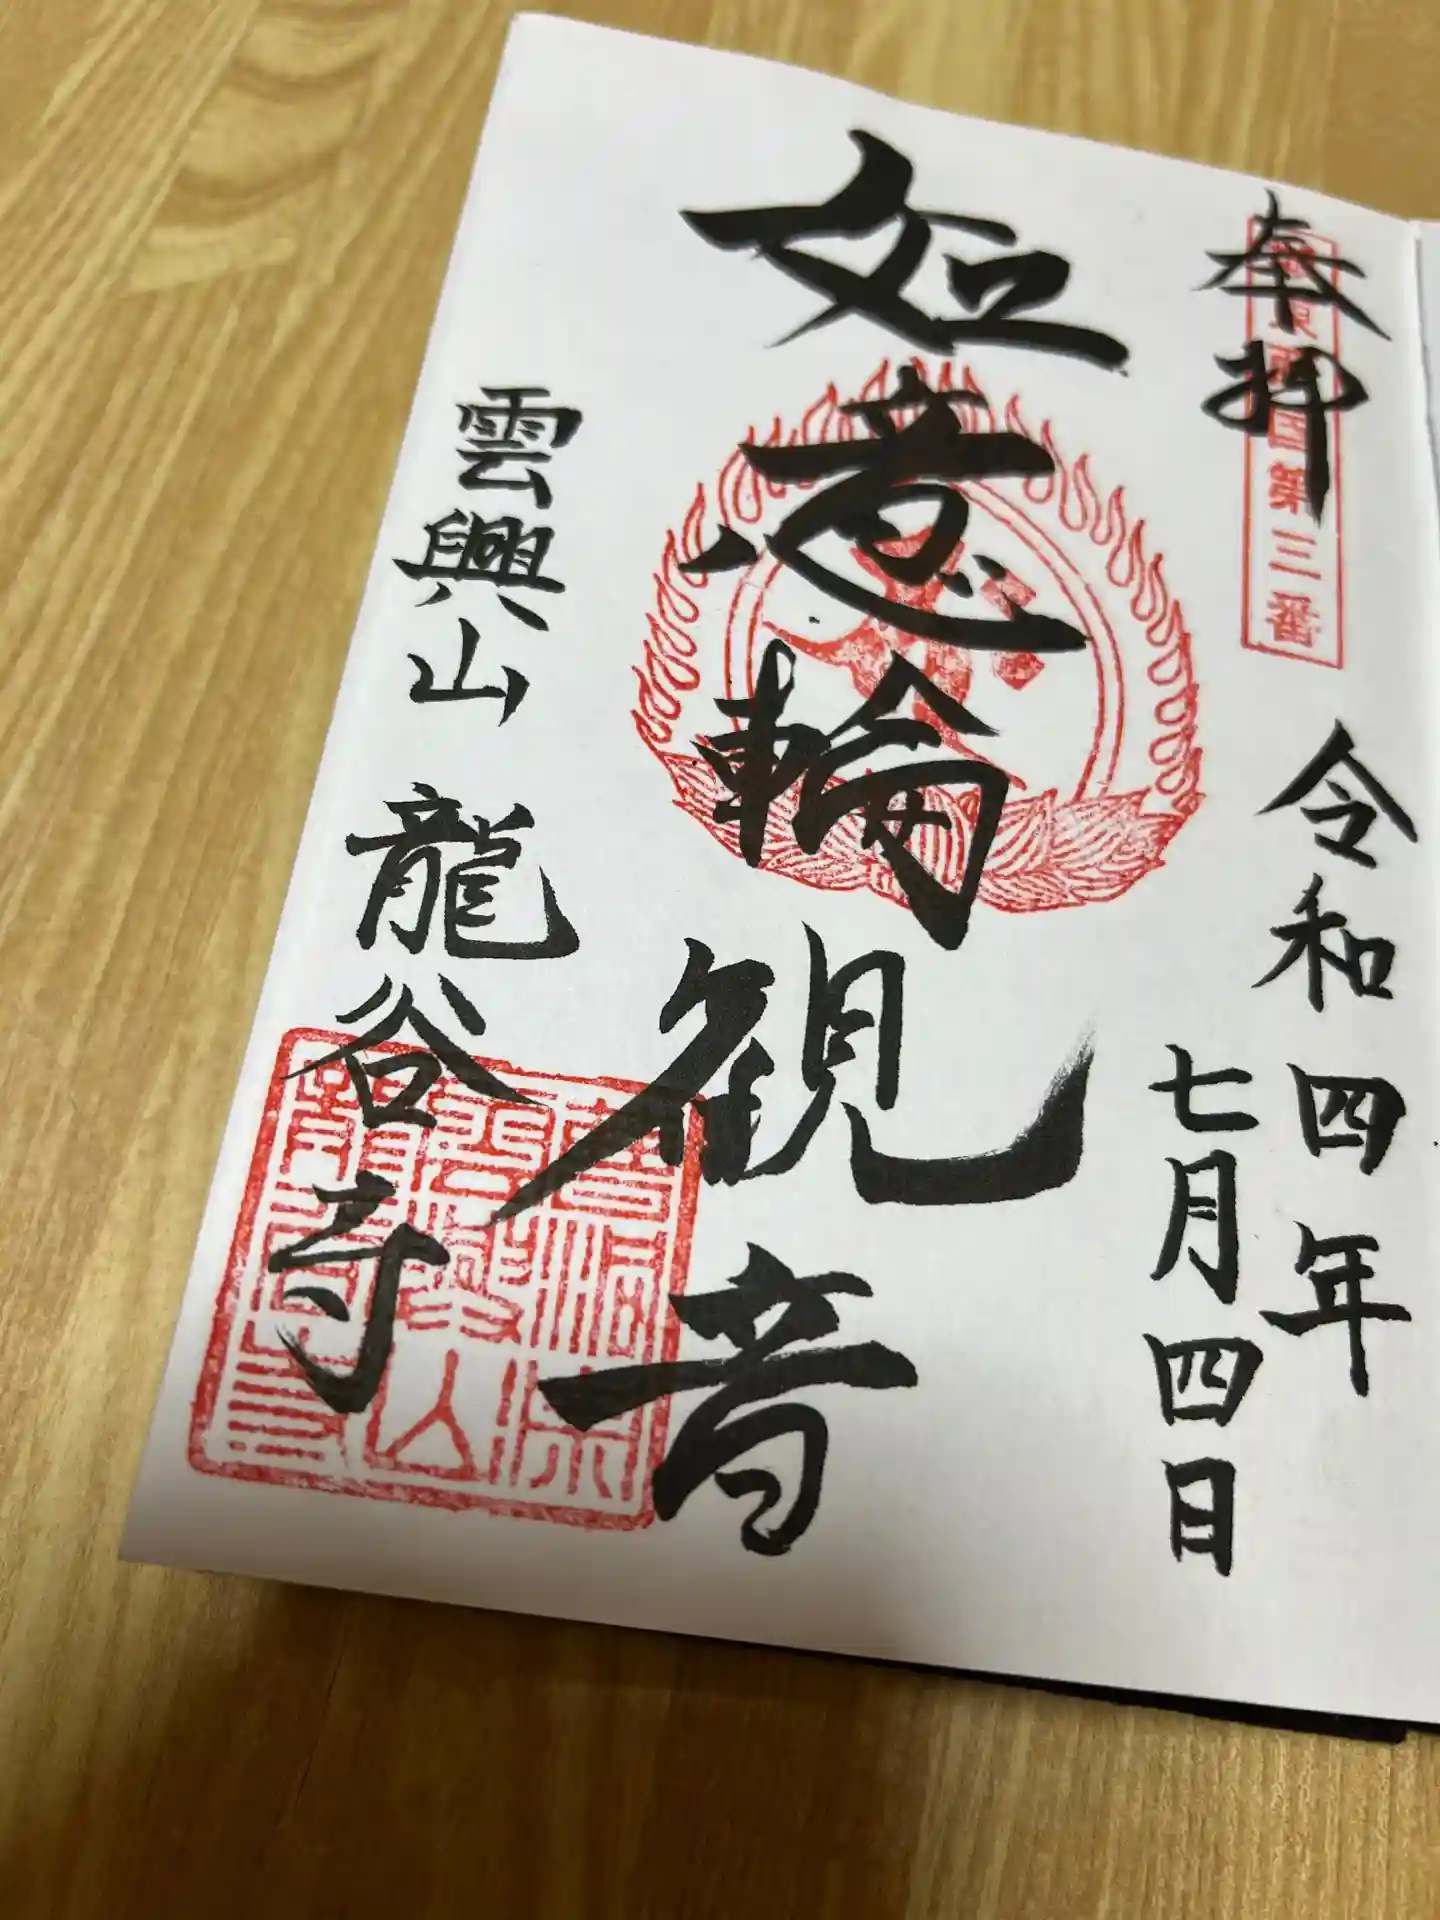 奉拝
西国第三番
令和四年
七月四日
如意輪観音
雲興山 龍谷寺